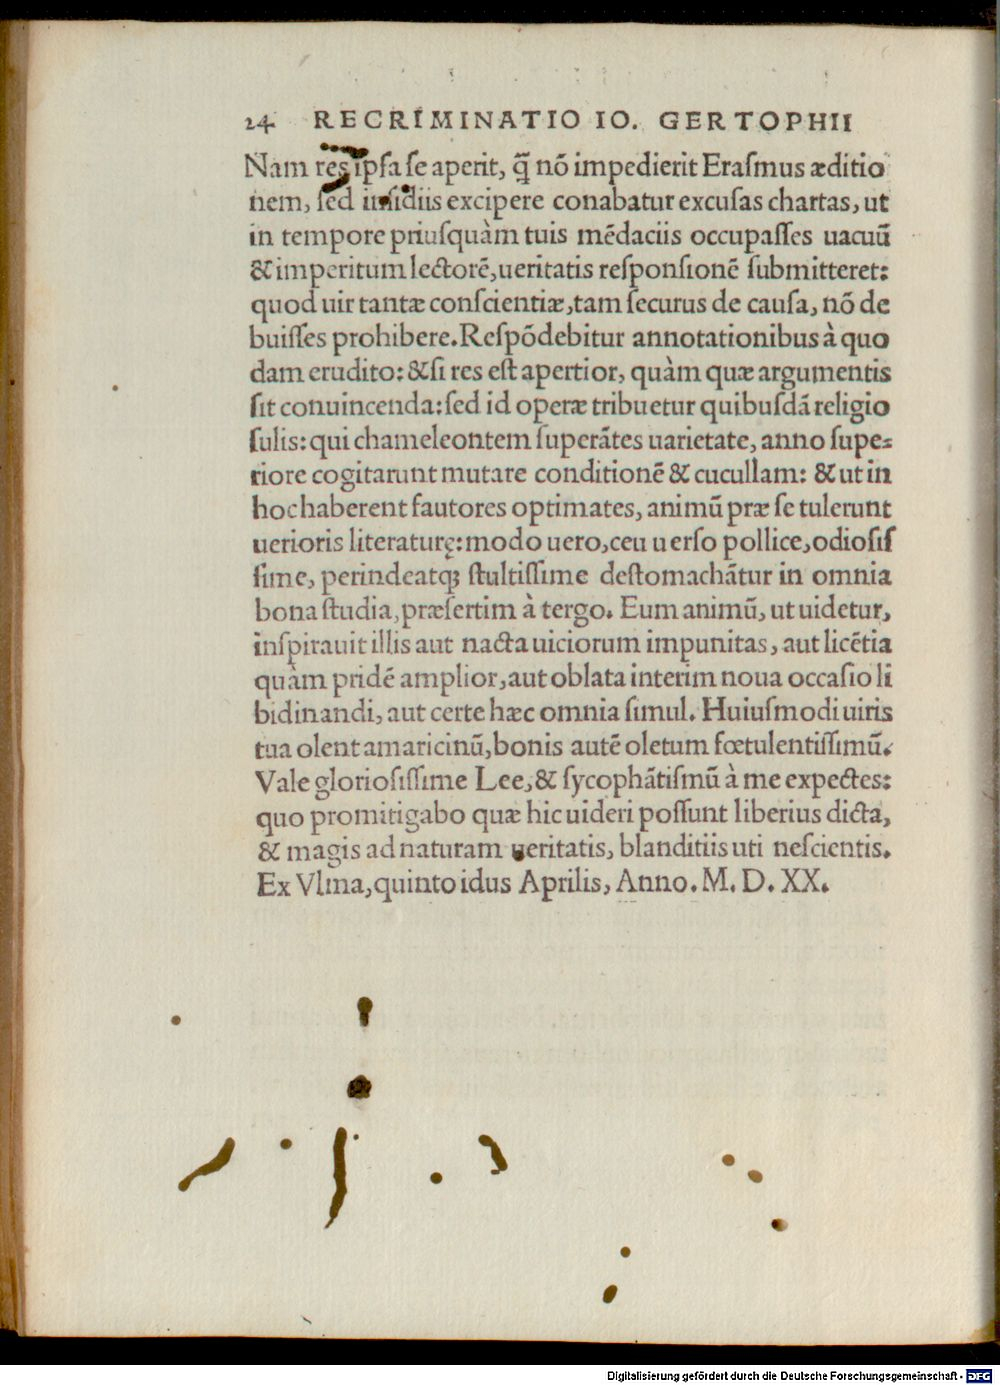 24 RECRIMINATIO IO. GERTOPHII
Nam res ipſa ſe aperit, q̃ nõ impedierit Eraſmus æditio
nem, ſed inſidiis excipere conabatur excuſas chartas, ut
in tempore priuſquàm tuis mẽdaciis occupaſſes uacuũ
& imperitum lectorẽ, ueritatis reſponſionẽ ſubmitteret:
quod uir tantæ conſcientiæ, tam ſecurus de cauſa, nõ de
buiſſes prohibere. Reſpõdebitur annotationibus à quo
dam erudito: & ſi res eſt apertior, quàm quæ argumentis
ſit conuincenda: ſed id operæ tribuetur quibuſdã religio
ſulis: qui chameleontem ſuperãtes uarietate, anno ſupe⸗
riore cogitarunt mutare conditionẽ & cucullam: & ut in
hoc haberent fautores optimates, animũ præ ſe tulerunt
uerioris literaturę: modo uero, ceu uerſo pollice, odioſiſ
ſime, perindeatq́; ſtultiſſime deſtomachãtur in omnia
bona ſtudia, præſertim à tergo. Eum animũ, ut uidetur,
inſpirauit illis aut nacta uiciorum impunitas, aut licẽtia
quàm pridẽ amplior, aut oblata interim noua occaſio li
bidinandi, aut certe hæc omnia ſimul. Huiuſmodi uiris
tua olent amaricinũ, bonis autẽ oletum fœtulentiſſimũ.
Vale glorioſiſſime Lee, & ſycophãtiſmũ à me expectes:
quo promitigabo quæ hic uideri poſſunt liberius dicta,
& magis ad naturam ueritatis, blanditiis uti neſcientis.
Ex Vlma, quinto idus Aprilis, Anno. M. D. XX.
Digitalisierung gefördert durch die Deutsche Forschungsgemeinschaft - DFG